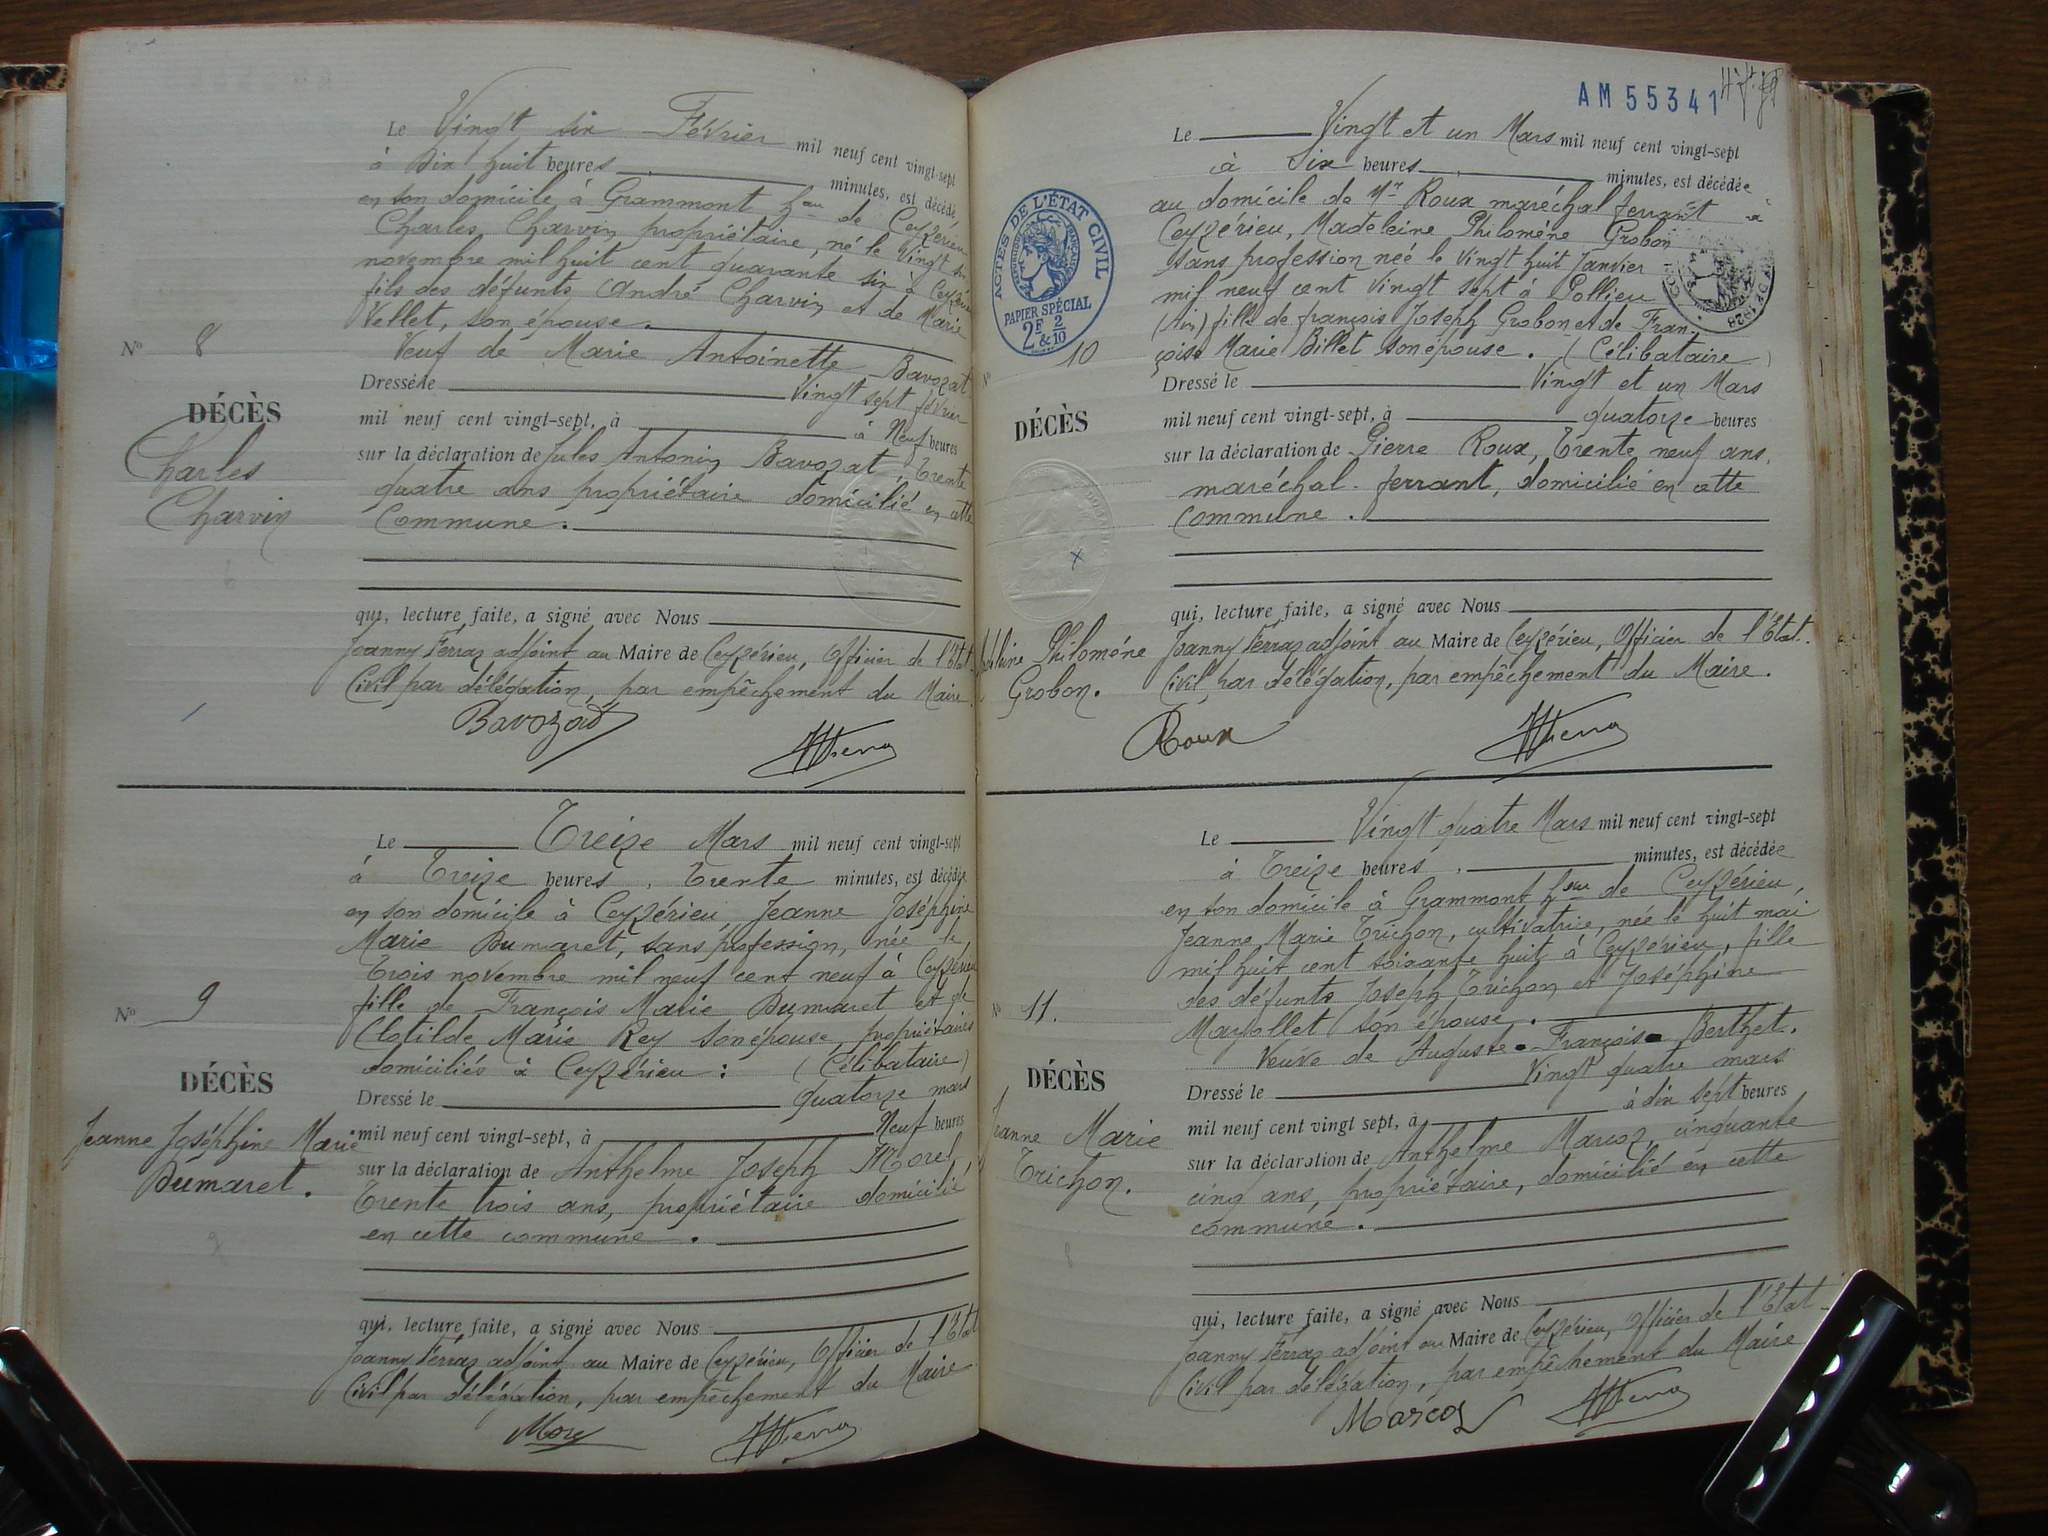 Le Vingt six Février mil neuf cent vingt-sept
à Dix huit heures minutes, est décédé,
en son domicile à Grammont hau de Ceyzérieu
Charles Charvin propriétaire, né le Vingt six
novembre mil huit cent quarante six à Ceyzérieu
fils des défunts André Charvin et de Marie
Vellet, son épouse.
Veuf de Marie Antoinette Bavozat
Dressé le Vingt sept février
mil neuf cent vingt-sept, à à Neuf heures
sur la déclaration de Jules Antonin Bavozat, Trente
quatre ans propriétaire domicilié en cette
Commune.
qui, lecture faite, a signé avec Nous
Joanny Ferraz adjoint au Maire de Ceyzérieu, Officier de l'Etat
Civil par délégation, par empêchement du Maire.
Bavozat
No 8
DÉCÈS
Charles
Charvin
Le Treize Mars mil neuf cent vingt-sept
à Treize heures, Trente minutes, est décédée
en son domicile à Ceyzérieu, Jeanne Joséphine
Marie Dumaret, sans profession, née le
Trois novembre mil neuf cent neuf à Ceyzérieu
fille de François Marie Dumaret et de
Clotilde Marie Rey son épouse, propriétaires
domiciliés à Ceyzérieu : (Célibataire)
Dressé le quatorze mars
mil neuf cent vingt-sept, à Neuf heures
sur la déclaration de Anthelme Joseph Morel,
Trente trois ans, propriétaire domicilié
en cette commune.
qui, lecture faite, a signé avec Nous
Joanny Ferraz adjoint au Maire de Ceyzérieu, Officier de l'Etat
Civil par délégation, par empêchement du Maire
No 9
DÉCÈS
Jeanne Joséphine Marie
Dumaret.
AM 55341
ACTES DE L'ÉTAT CIVIL
RÉPUBLIQUE FRANÇAISE
PAPIER SPÉCIAL
2F & 2/10
Le Vingt et un Mars mil neuf cent vingt-sept
à Six heures minutes, est décédée
au domicile de Mr Roux maréchal ferrant à
Ceyzérieu, Madeleine Philomène Grobon
sans profession née le Vingt huit Janvier
mil neuf cent Vingt sept à Pollieu
(Ain) fille de françois Joseph Grobon et de Fran-
çoise Marie Billet son épouse. (Célibataire)
Dressé le Vingt et un Mars
mil neuf cent vingt-sept, à quatorze heures
sur la déclaration de Pierre Roux, Trente neuf ans,
maréchal-ferrant, domicilié en cette
Commune.
qui, lecture faite, a signé avec Nous
Joanny Ferraz adjoint au Maire de Ceyzérieu, Officier de l'Etat.
Civil par délégation, par empêchement du Maire.
Roux
10
DÉCÈS
Philomène
Grobon.
Le Vingt quatre Mars mil neuf cent vingt-sept
à Treize heures minutes, est décédée
en son domicile à Grammont hau de Ceyzérieu,
Jeanne Marie Trichon, cultivatrice, née le huit mai
mil huit cent soixante huit à Ceyzérieu, fille
des défunts Joseph Trichon et Joséphine
Mayollet son épouse.
Veuve de Auguste François Berthet.
Dressé le Vingt quatre mars
mil neuf cent vingt sept, à à dix sept heures
sur la déclaration de Anthelme Marcoz, cinquante
cinq ans, propriétaire, domicilié en cette
commune.
qui, lecture faite, a signé avec Nous
Joanny Ferraz adjoint au Maire de Ceyzérieu, Officier de l'Etat
Civil par délégation, par empêchement du Maire
Marcoz
No 11.
DÉCÈS
Jeanne Marie
Trichon.